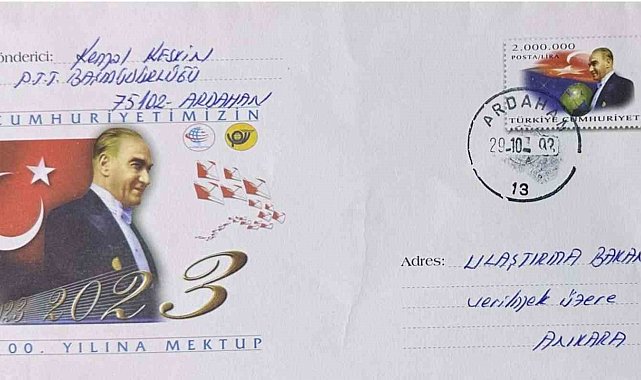 önderici: Kemal KESKİN
P.T.T. BAŞMÜDÜRLÜĞÜ
75102- ARDAHAN
CUMHURİYETİMİZİN
2023
00. YILINA MEKTUP
2.000.000
POSTA/LİRA
TÜRKİYE CUMHURİYE
ARDAHAN
29-10
13
Adres: ULAŞTIRMA BAKAN
verilmek üzere
ANKARA